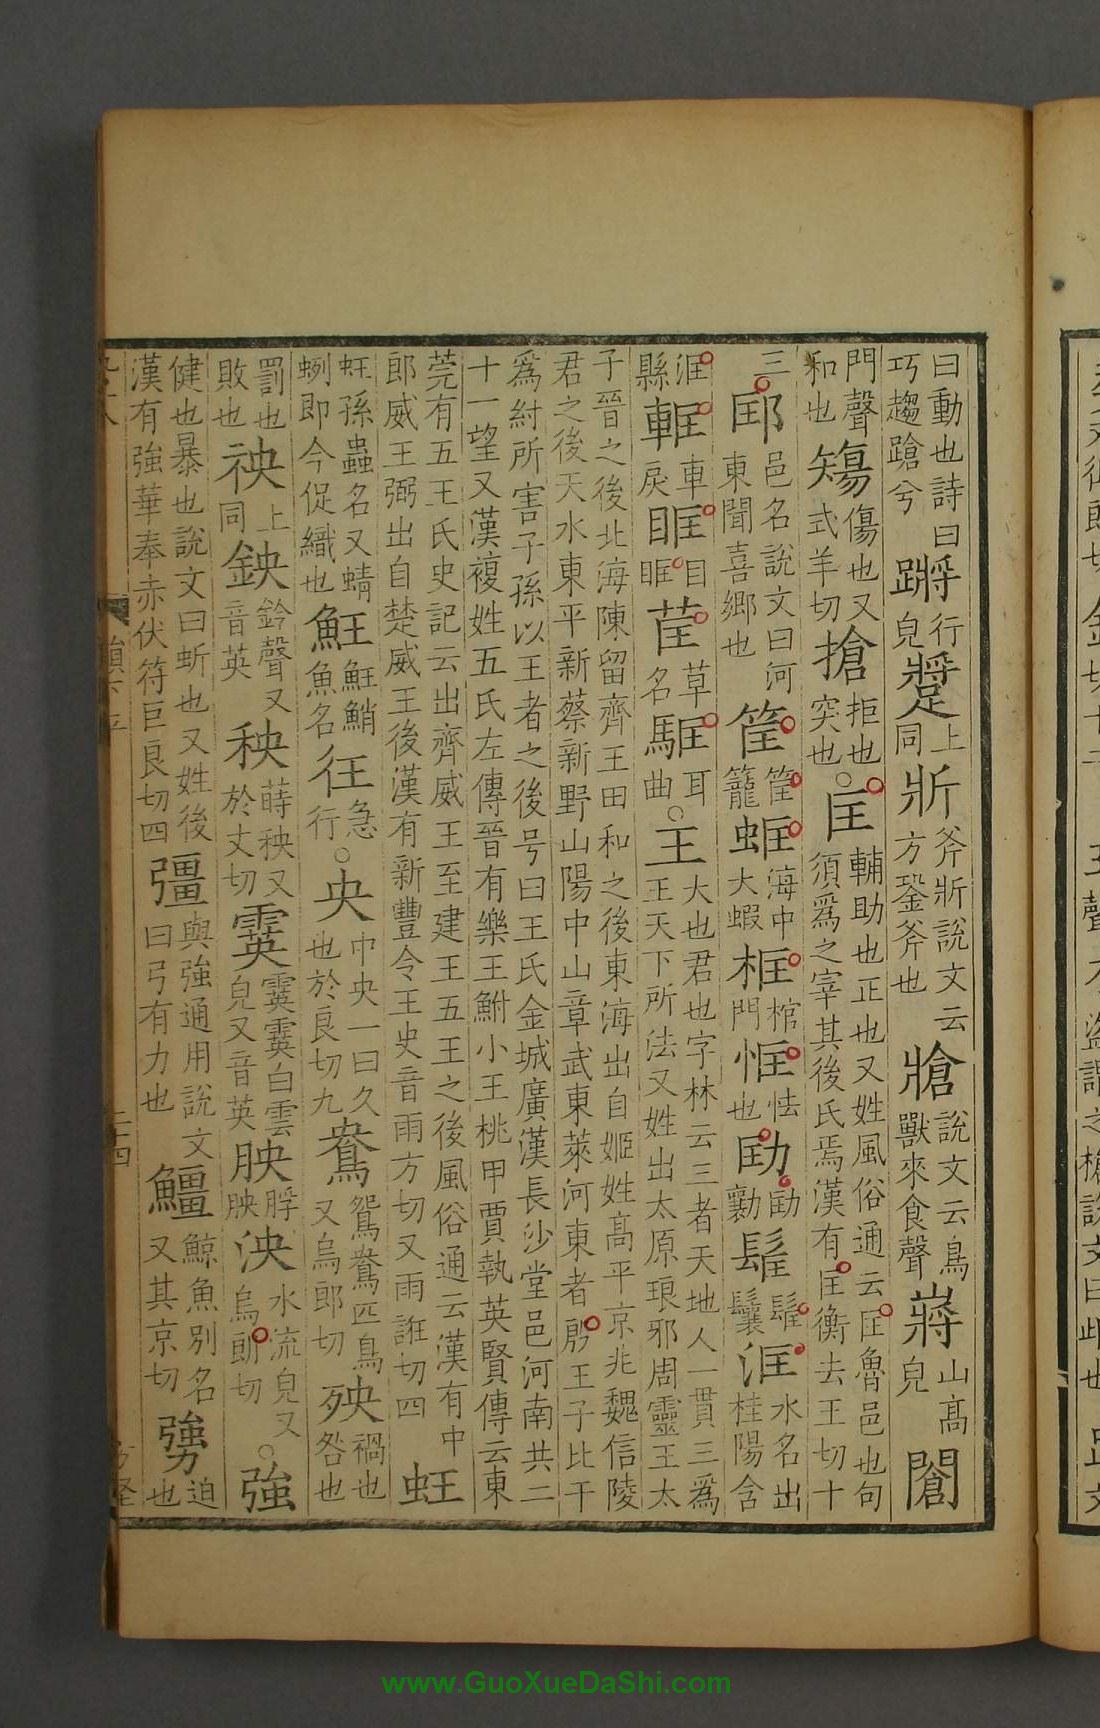 曰動也詩曰巧趨蹌兮蹡行皃𨄚上同斨斧斨說文云方銎斧也牄說文云鳥獸來食聲嶈山髙皃閶
門聲和也𥏻傷也又式羊切搶拒也突也○匡輔助也正也又姓風俗通云匡魯邑也句須爲之宰其後氏焉漢有匡衡去王切十
三邼邑名說文曰河東聞喜鄉也筐筐籠𧊶海中大蝦框棺門恇怯也劻劻勷𩭃𩭃鬤洭水名出桂陽含
洭縣軭車戾眶目眶草名耳曲○王大也君也字林云三者天地人一貫三爲王天下所法又姓出太原琅邪周靈王太
子晉之後北海陳留齊王田和之後東海出自姬姓髙平京兆魏信陵君之後天水東平新蔡新野山陽中山章武東萊河東者殷王子比干
爲紂所害子孫以王者之後号曰王氏金城廣漢長沙堂邑河南共二十一望又漢複姓五氏左傳晉有樂王鮒小王桃甲賈執英賢傳云東
莞有五王氏史記云出齊威王至建王五王之後風俗通云漢有中郎威王弼出自楚威王後漢有新豐令王史音雨方切又雨誑切四蚟
蚟孫蟲名又蜻蛚即今促織也䲑䲑鮹魚名彺急行○央中央一曰久也於良切九鴦鴛鴦匹鳥又烏郎切殃禍也咎也
罰也敗也䄃上同鉠鈴聲又音英秧蒔秧又於丈切霙霙霙白雲皃又音英胦脖胦泱水流皃又烏郎切○強
健也暴也說文曰蚚也又姓後漢有強華奉赤伏符巨良切四彊與強通用說文曰弓有力也䲔鯨魚別名又其京切勥迫也
www.GuoXueDaShi.com